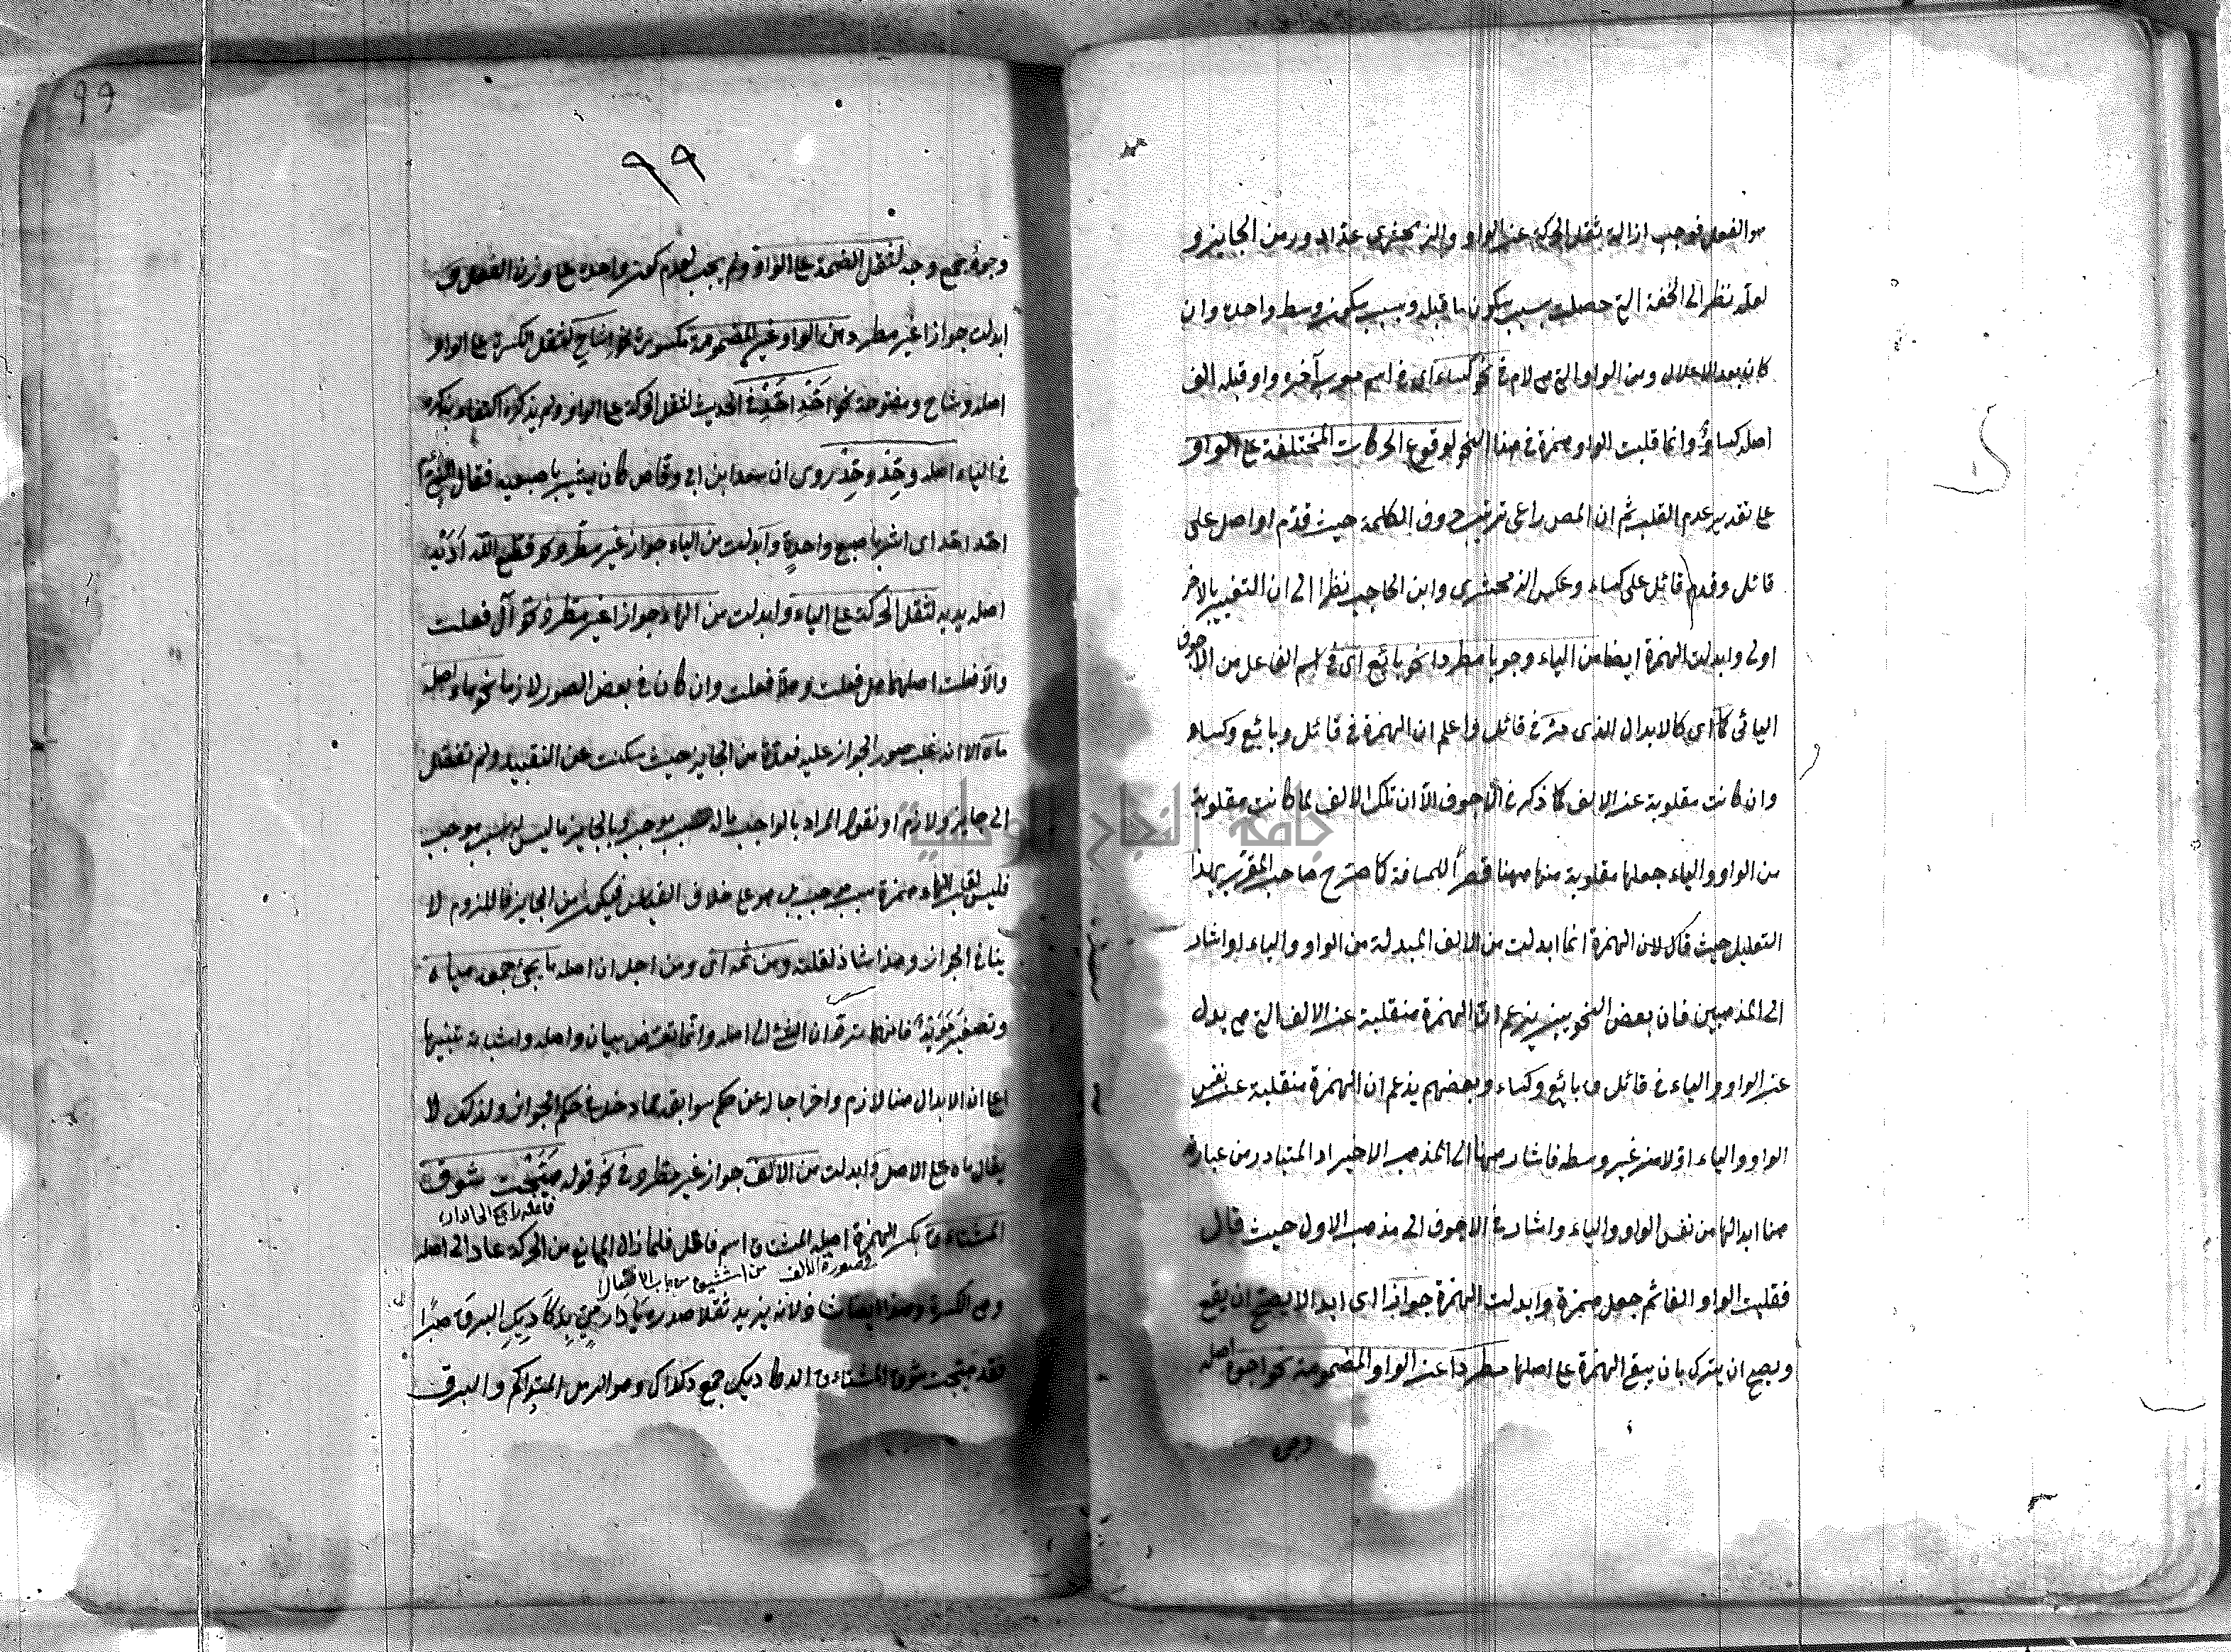 هو الفعل فوجب ازالة ثقل الحركة عن الواو والزمخشرى عد ادور من الجايز و
لعله نظر الى الخفة التى حصلت بسبب سكون ما قبله وبسبب سكون وسط واحده وان
كان بعد الاعلال ومن الواو التى هى لام فى نحو كساء اى فى اسم معرب آخره واو قبله الف
اصله كساو وانما قلبت الواو همزة فى هذا النحو لوقوع الحركات المختلفة على الواو
على تقدير عدم القلب ثم ان المص راعى ترتيب حروف الكلمة حيث قدم اواصل على
قائل وقدم قائل على كساء وعكس الزمخشرى وابن الحاجب نظرا الى ان التغيير بالاخر
اولى وابدلت الهمزة ايضا من الياء وجوبا مطردا نحو بائع اى فى اسم الفاعل من الاجوف
اليائى كما اى كالابدال الذى مر فى قائل واعلم ان الهمزة فى قائل وبائع وكساء
وان كانت مقلوبة عن الالف كما ذكر فى الاجوف الا ان تلك الالف لما كانت مقلوبة
من الواو والياء جعلها مقلوبة منها ههنا قصرا للمسافة كما صرح صاحب المقرب بهذا
التعليل حيث قال لان الهمزة انما ابدلت من الالف المبدلة من الواو والياء او اشار
الى المذهبين فان بعض النحويين يزعم ان الهمزة منقلبة عن الالف التى هى بدل
عن الواو والياء فى قائل وبائع وكساء وبعضهم يزعم ان الهمزة منقلبة عن نفس
الواو والياء اولا من غير وسطه فاشار ههنا الى المذهب الاخير اذ المتبادر من عبارة
هنا ابدالها من نفس الواو والياء واشار فى الاجوف الى مذهب الاول حيث قال
فقلبت الواو الفا ثم جعل همزة وابدلت الهمزة جوازا اى ابدالا يصح ان يقع
ويصح ان يترك بان يبقى الهمزة على اصلها مطردا عن الواو المضمومة نحو اجوه اصله
وجوه
٩٩
٩٩
وجوه جمع وجه لثقل الضمة على الواو ولم يجب لعدم كون واحده على وزن الفعل و
ابدلت جوازا غير مطرد من الواو غير المضمومة مكسورة نحو اشاح لثقل الكسرة على الواو
اصله وشاح ومفتوحة نحو احّد احّد فى الحديث لثقل الحركة على الواو ولم يذكره اكتفاء بذكره
فى الياء اصله وحّد وحّد روى ان سعد ابن ابى وقاص كان يشير باصبعيه فقال النبى عم
احد احد اى اشر باصبع واحدة وابدلت من الياء جواز غير مطرد نحو قطع الله اديه
اصله يديه لثقل الحركة على الياء وابدلت من الهاء جوازا غير مطرد نحو آل فعلت
والا فعلت اصلهما هل فعلت وهلا فعلت وان كان فى بعض الصور لازما نحو ماء اصله
ماه الا انه غلب صور الجواز عليه فعده من الجايز حيث سكت عن التقييد ولم تفصل
الى جايز ولازم او نقول المراد بالواجب ما له سبب موجب وبالجايز ما ليس له سبب موجب
فليس لقلب الهاء همزة سبب موجب بل هو على خلاف القياس فيكون من الجايز فاللزوم لا
ينافى الجواز وهذا شاذ لقلته ومن ثمه اى ومن اجل ان اصله ماه يجئ جمعه مياه
وتصغيره مويه
على ان الابدال هنا لازم واخراجا له عن حكم سوابقه مما دخل فى حكم الجواز ولذلك لا
يقال ماه على الاصل وابدلت من الالف جواز غير مطرد فى نحو قوله هيجت شوق
فاعله راجع الى الدار
المشتاءق بكسر الهمزة اصله المشتاق اسم فاعل فلما زال المانع من الحركة عاد الى اصله
فى صورة الالف
وهى الكسرة صدره يا دار مى بدكاديك البرق صبرا
فقد هيجت شوق المشتاءق الدكاديك جمع دكداك وهو الرمل المتراكم والبرق